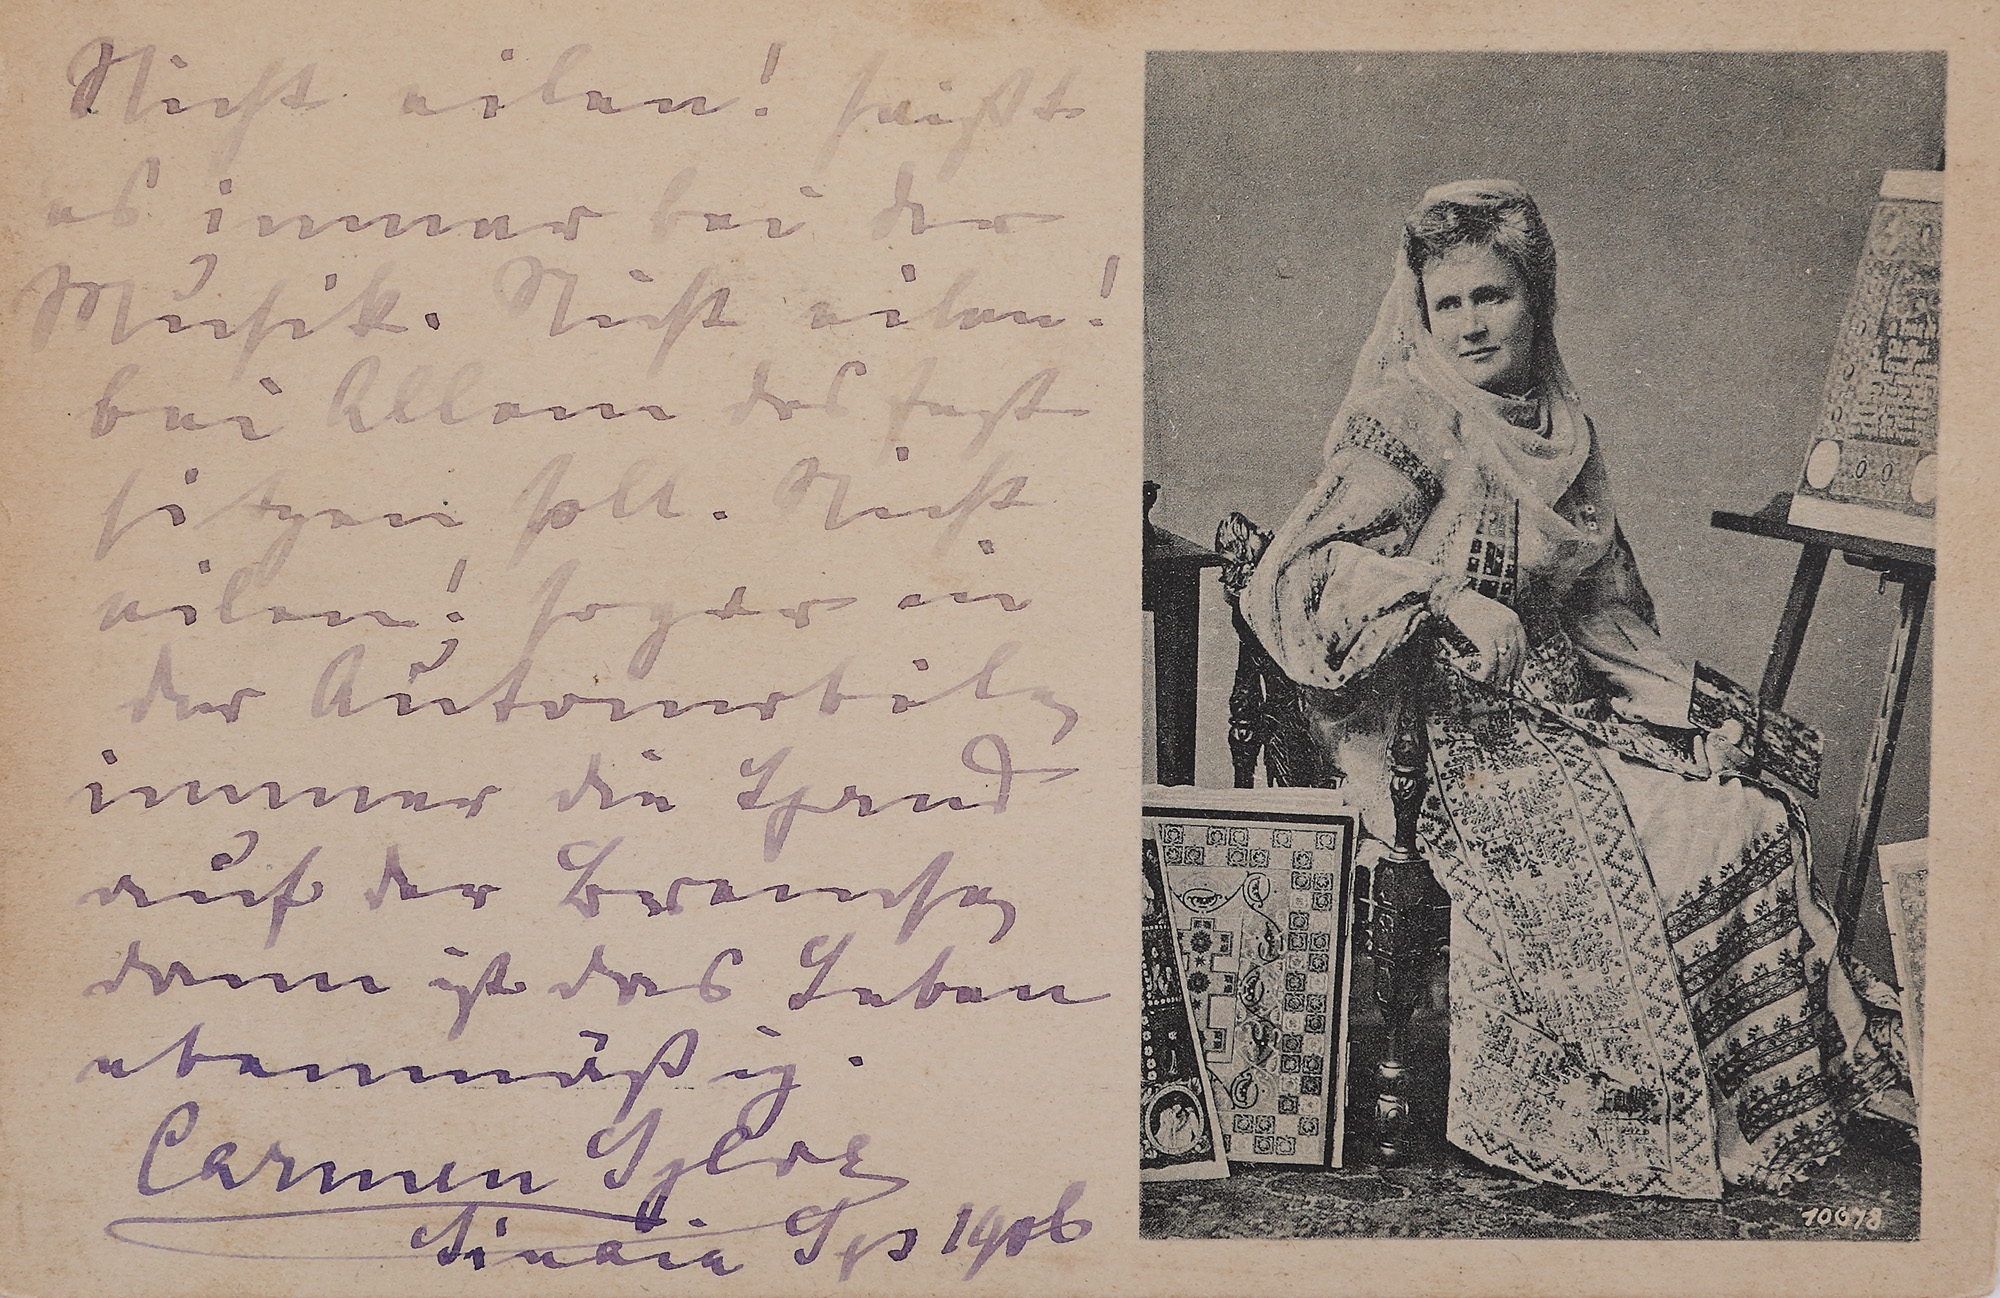 Nicht eilen! heißt
es immer bei der
Musik. Nicht eilen!
bei Allem das fest
sitzen soll. Nicht
eilen! sogar in
der Automobil,
immer die Hand
auf der Bremse,
dann ist das Leben
ebenmäßig.
Carmen Sylva
Sinaia 1906
10618